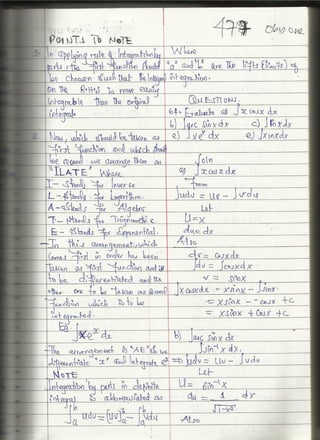 POINTS TO NOTE
In applying rule of Integration by
parts the first function should
be chosen such that the Integral
on the R.H.S is more easily
Integrable than the original
Integral
Now, which should be taken as
first function and which should
be second we arrange them as
"ILATE" Where
I - stands for inverse
L - stands for Logarithm.
A - stands for Algebra
T - stands for Trigonometric
E - stands for Exponential.
In this arrangement, which
comes first in order has been
taken as first function and is
to be differentiated and the
other one to be taken as second
function which is to be
integrated.
Eg ∫xeˣ dx
The arrangement is "AE" so we
differentiate "x" and Integrate eˣ
NOTE
Integration by parts in definite
integral is abbreviated as
∫ₐᵇ udv = [uv]ₐᵇ - ∫ₐᵇ vdu
Where
"a" and "b" are the limits of
integration.
QUESTIONS.
Evaluate a) ∫x cosx dx
b) ∫arc sinx dx c) ∫lnxdx
d) ∫xeˣ dx e) ∫xlnxdx
Soln
a) ∫x cosx dx
From
∫udv = uv - ∫vdu
Let
U = x
du = dx
Also
dv = cosxdx
∫dv = ∫cosxdx.
v = sinx
∫xcosxdx = xsinx - ∫sinx
= xsinx - -cosx + C
= xsinx + cosx + C
b) ∫arc sinx dx
∫sin⁻¹x dx.
⇒ ∫udv = Uv - ∫vdu
Let
U = sin⁻¹x
du = 1 dx
√1-x²
Also